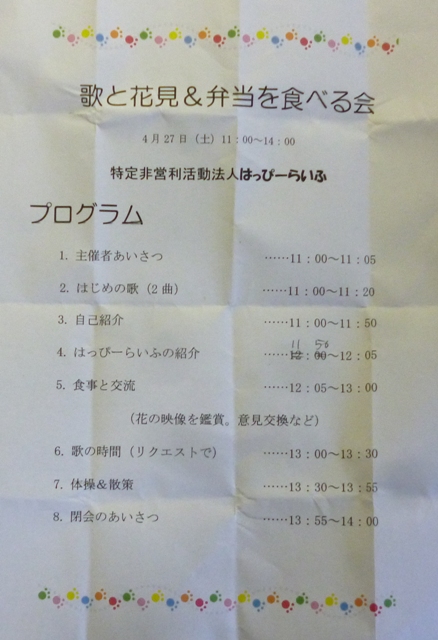 歌と花見＆弁当を食べる会
4月27日（土）11：00～14：00
特定非営利活動法人はっぴーらいふ
プログラム
1. 主催者あいさつ ……11：00～11：05
2. はじめの歌（2曲） ……11：00～11：20
3. 自己紹介 ……11：00～11：50
11 50
4. はっぴーらいふの紹介 ……12：00～12：05
5. 食事と交流 ……12：05～13：00
（花の映像を鑑賞。意見交換など）
6. 歌の時間（リクエストで） ……13：00～13：30
7. 体操＆散策 ……13：30～13：55
8. 閉会のあいさつ ……13：55～14：00